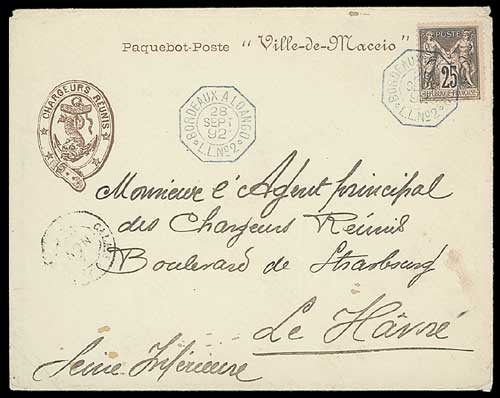 Paquebot-Poste "Ville-de-Maceio"
POSTE
25
REPUBLIQUE FRANCAISE
CHARGEURS RÉUNIS
BORDEAUX A LOANGO
28
SEPT
92
L.L.Nº2
BORDEAUX
92
L.L.Nº2
Monsieur l'Agent principal
des Chargeurs Réunis
Boulevard de Strasbourg
Le Hâvre
Seine Inférieure